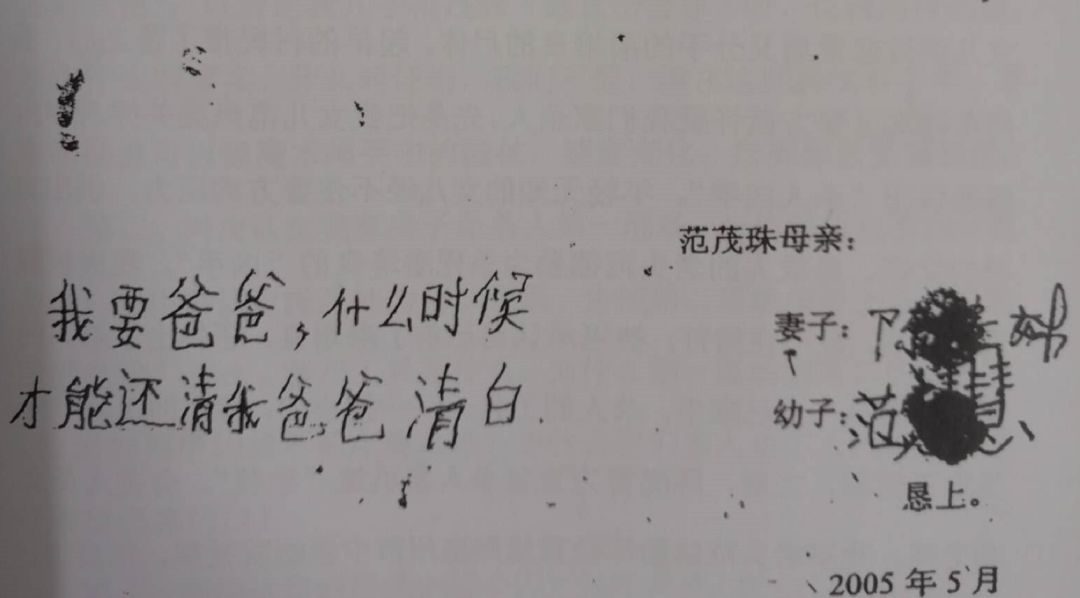 范茂珠母亲：
我要爸爸，什么时候
才能还清我爸爸清白
妻子：
幼子：范
恳上。
2005年5月